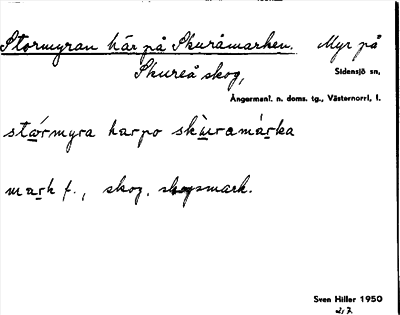 Stormyran här på Skuråmarken. Myr på
Skureå skog,
Sidensjö sn,
Ångermanl. n. doms. tg., Västernorrl, l.
stɷ́rmyra harpo skùramárka
mark f., skog, skogsmark.
Sven Hiller 1950
2/7